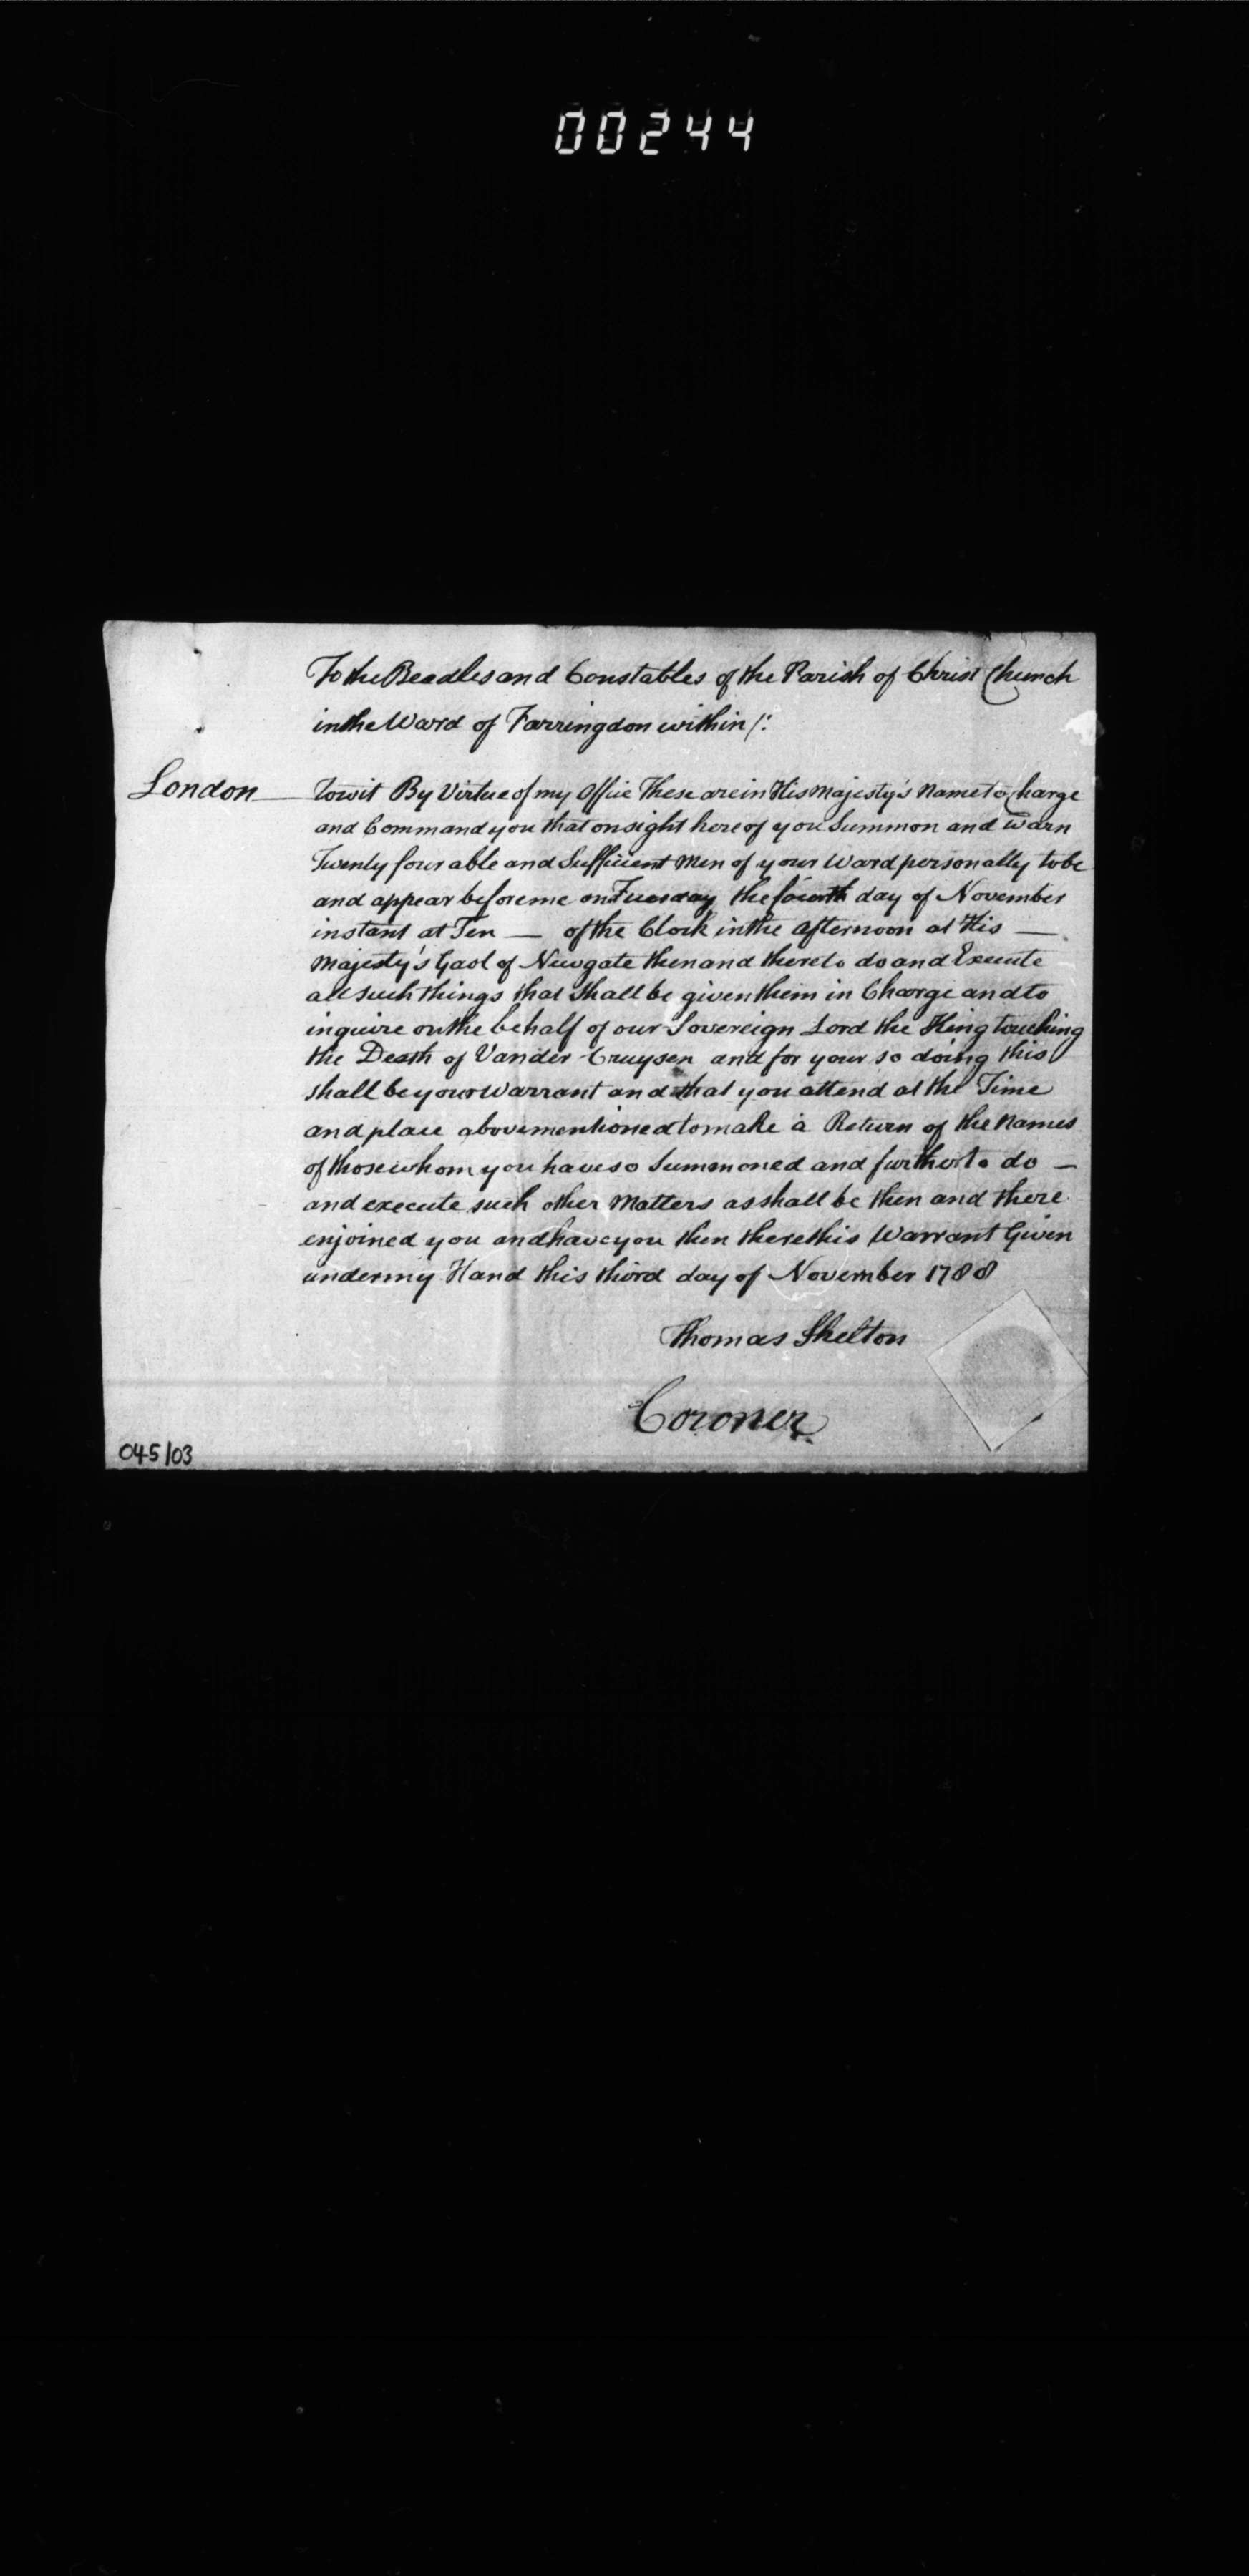 00244
To the Beadles and Constables of the Parish of Christ Church
in the Ward of Farringdon within /:
London Towit By Virtue of my Office These are in His Majesty's Name to Charge
and Command you that on sight hereof you Summon and Warn
Twenty four able and Sufficient Men of your Ward personally to be
and appear before me on Tuesday the fourth day of November
instant at Ten — of the Clock in the Afternoon at His —
Majesty's Gaol of Newgate then and there to do and Execute
all such things that shall be given them in Charge and to
inquire on the behalf of our Sovereign Lord the King touching
the Death of Vander Cruysen and for your so doing this
shall be your Warrant and that you attend at the Time
and place abovementioned to make a Return of the Names
of those whom you have so Summoned and further to do —
and execute such other Matters as shall be then and there
enjoined you and have you then there this Warrant Given
under my Hand this third day of November 1788
Thomas Shelton
Coroner
045/03